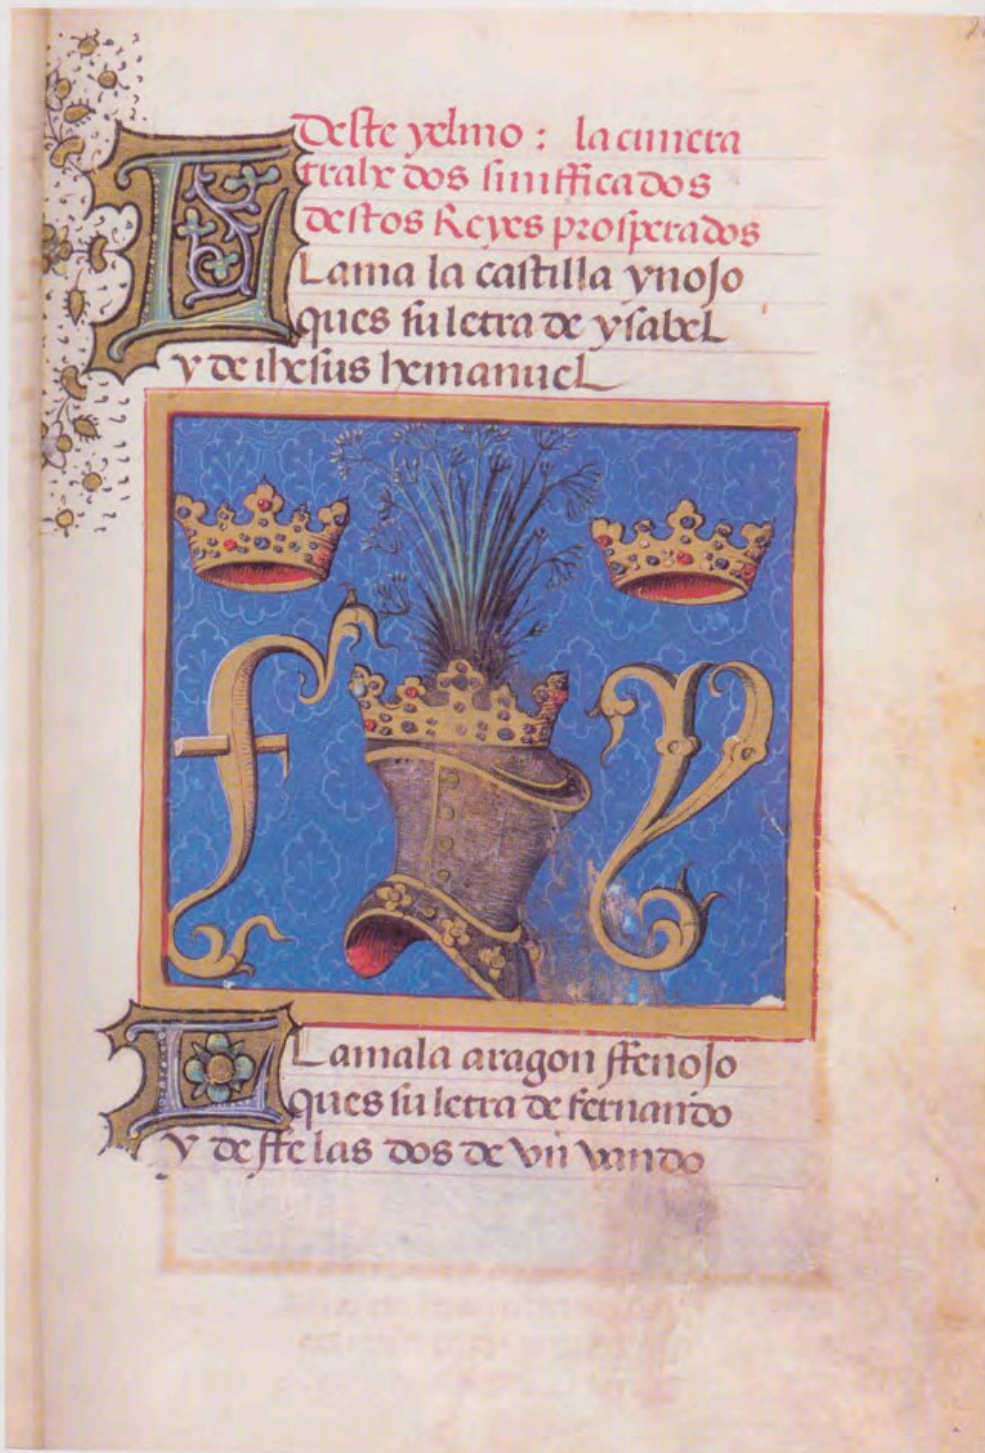 Deste yelmo : la cimera
trahe dos sinifficados
destos Reyes prosperados
LLama la castilla ynojo
ques su letra de ysabel
y de ihesus hemanuel
f y
LLamala aragon ffenojo
ques su letra de fernando
y de ffe las dos de vn vando